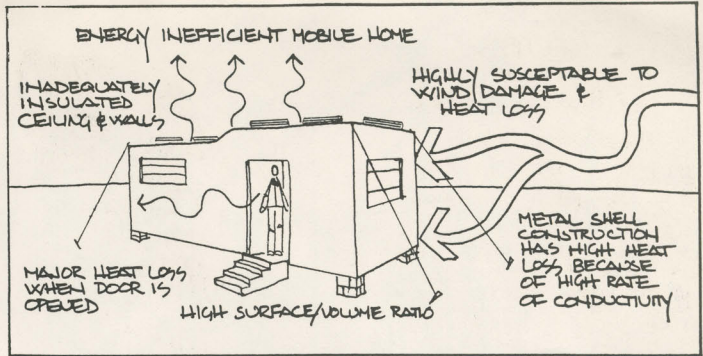 ENERGY INEFFICIENT MOBILE HOME
INADEQUATELY
INSULATED
CEILING & WALLS
HIGHLY SUSCEPTABLE TO
WIND DAMAGE &
HEAT LOSS
MAJOR HEAT LOSS
WHEN DOOR IS
OPENED
HIGH SURFACE/VOLUME RATIO
METAL SHELL
CONSTRUCTION
HAS HIGH HEAT
LOSS BECAUSE
OF HIGH RATE
OF CONDUCTIVITY